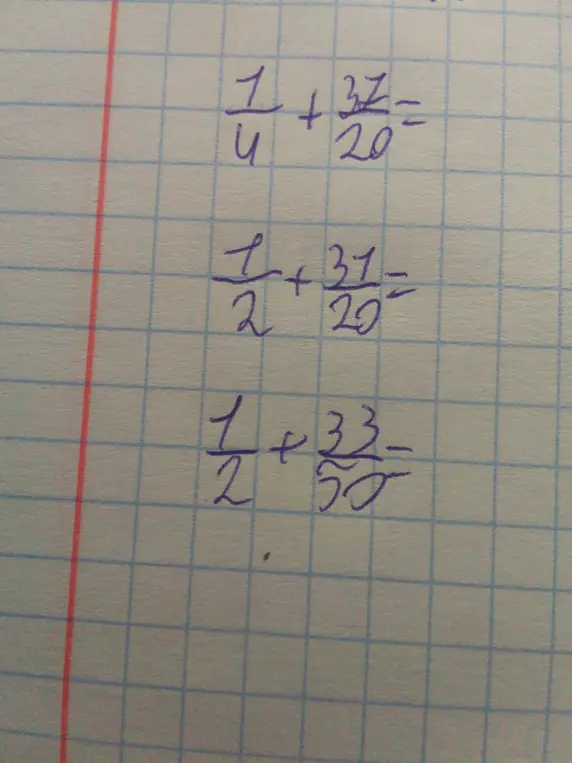 1/4 + 37/20 =
1/2 + 31/20 =
1/2 + 33/50 =